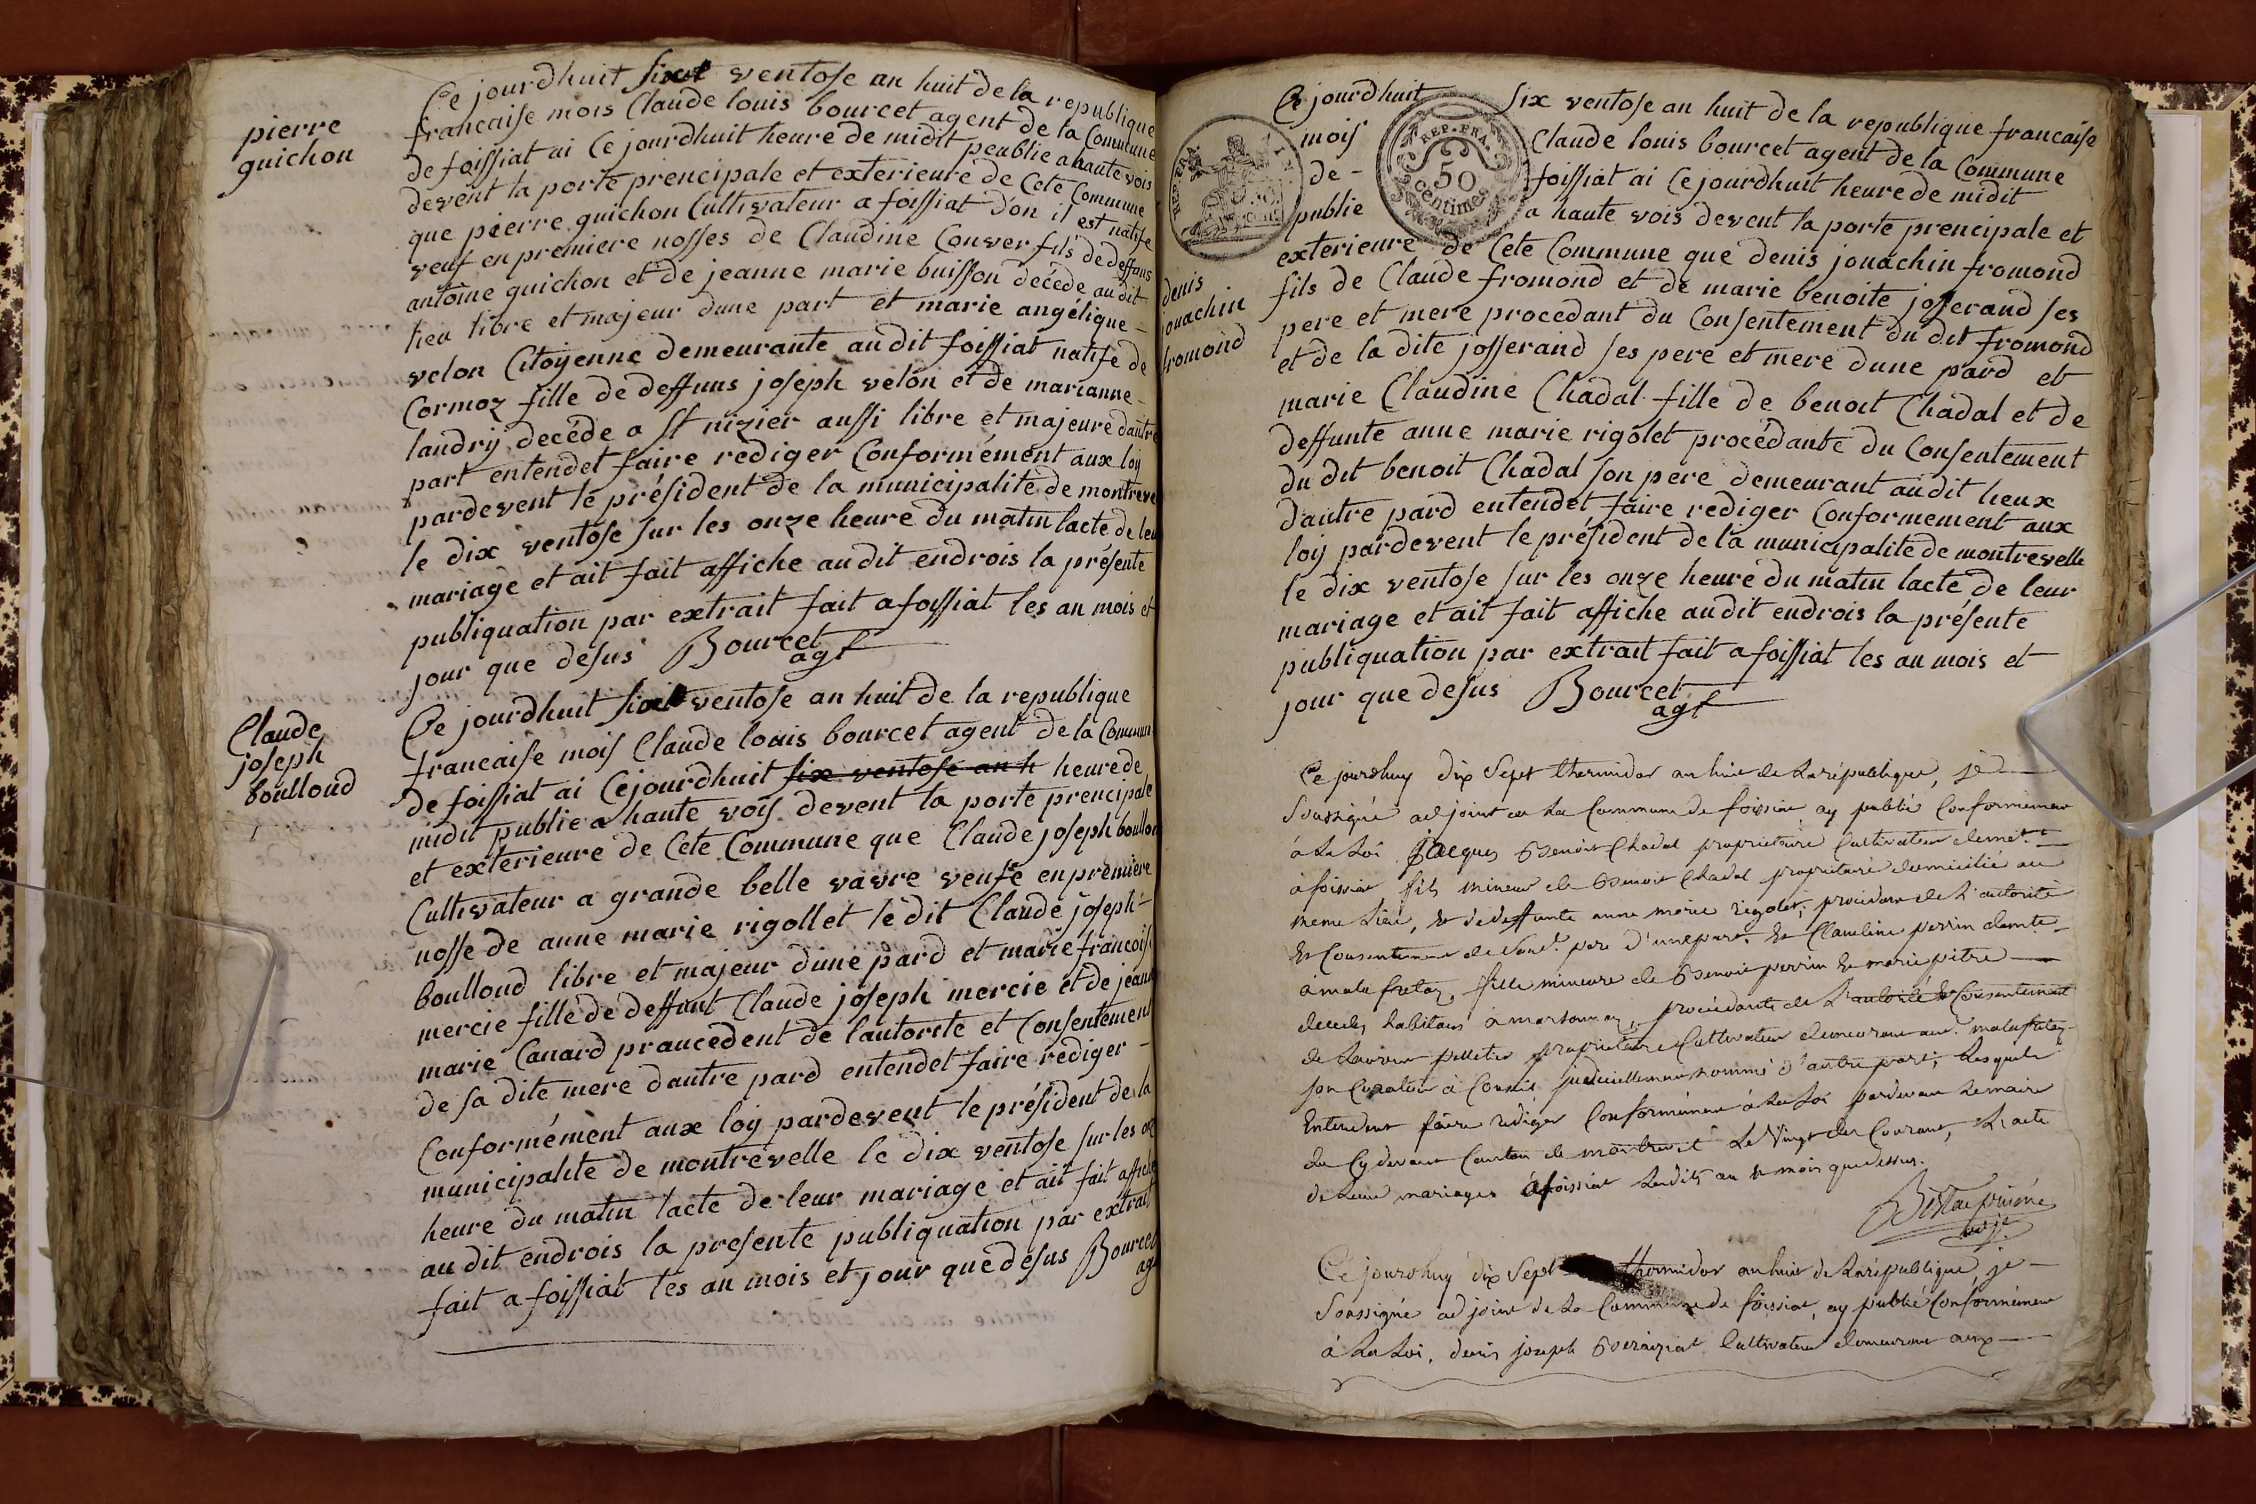 pierre
guichon
Ce jourdhuit six ventose an huit de la republique
francaise mois Claude louis bourcet agent de la Commune
de foissiat ai Ce jourdhuit heure de midit peublie a haute vois
devent la porte prencipale et exterieure de Cete Commune
que pierre guichon Cultivateur a foissiat d'on il est natife
veuf en premiere nosses de Claudine Conver fils de deffuns
antoine guichon et de jeanne marie buisson décéde au dit
lieu libre et majeur dune part et marie angélique –
velon Citoyenne demeurante audit foissiat natife de
Cormoz fille de deffuns joseph velon et de marianne –
landrij decéde a St nizier aussi libre et majeure dautre
part entendet faire rediger Conformément aux loij
pardevent le président de la municipalité de montreve
le dix ventose sur les onze heure du matin lacte de leu
mariage et ait fait affiche audit endrois la présente
publiquation par extrait fait a foissiat les an mois et
jour que desus Bourcet
agt
Claude
joseph
boulloud
Ce jourdhuit ventose an huit de la republique
francaise mois Claude louis bourcet agent de la Commun
de foissiat ai Cejourdhuit six ventose an h heure de
midit publie a haute vois devent la porte prencipale
et exterieure de Cete Commune que Claude joseph boullou
Cultivateur a grande belle vavre veufe en premiere
nosse de anne marie rigollet le dit Claude joseph –
boulloud libre et majeur dune pard et marie francois
mercie fille de deffunt Claude joseph mercie et de jeann
marie Canard praucedent de lautorite et Consentement
de sa dite mere dautre pard entendet faire rediger –
Conformément aux loij pardevent le président de la
municipalité de montrevelle le dix ventose sur les on
heure du matin lacte de leur mariage et ait fait affiche
au dit endrois la presente publiquation par extrait
fait a foissiat les an mois et jour que desus Bourcet
ag
Ce jourdhuit six ventose an huit de la republique francaise
mois Claude louis bourcet agent de la Commune
de – foissiat ai Ce jourdhuit heure de midit
publie a haute vois devent la porte prencipale et
REP. FRA.
50
centimes
denis
jouachin
fromond
exterieure de Cete Commune que denis jouachin fromond
fils de Claude fromond et de marie benoite josserand ses
pere et mere procedant du Consentement du dit fromond
et de la dite josserand ses pere et mere dune pard et
marie Claudine Chadal fille de benoit Chadal et de
deffunte anne marie rigolet procédante du Consentement
du dit benoit Chadal son pere demeurant audit lieux
dautre pard entendet faire rediger Conformement aux
loij pardevent le président de la municipalite de montrevelle
le dix ventose sur les onze heure du matin lacte de leur
mariage et ait fait affiche audit endrois la présente
publiquation par extrait fait a foissiat les an mois et
jour que desus Bourcet
agt
Ce jourdhuy dix Sept thermidor an huit de la république, je
Soussigné adjoint de la Commune de foissiat ay publié Conformément
à la Loi Jacques Benoit Chadal propriétaire Cultivateur
à foissiat fils mineur de Benoit Chadal propriétaire domicilié au
meme Lieu, et de deffunte anne marie rigolet, procédant de l'autorité
et Consentement de pere d'une part. Et Claudine perrin
à malafretaz, fille mineure de Benoit perrin et marie pitre
decedés habitans à marsonnaz, procédante de l'autorité et Consentement
de pelletier propriétaire Cultivateur demeurant au malafretaz
son Curateur à Conseil judiciellement nommé d'autre part, lesquels
Entendent faire rediger Conformément à la Loi pardevant le maire
du Cydevant Canton de montrevel Le Vingt du Courant, L'acte
de leur mariages à foissiat Lesdits an et mois que dessus.
adjt
Ce jourdhuy dix Sept thermidor an huit de la république je –
Soussigné adjoint de la Commune de foissiat, ay publié Conformément
à la Loi, denis joseph Cultivateur demeurant aux